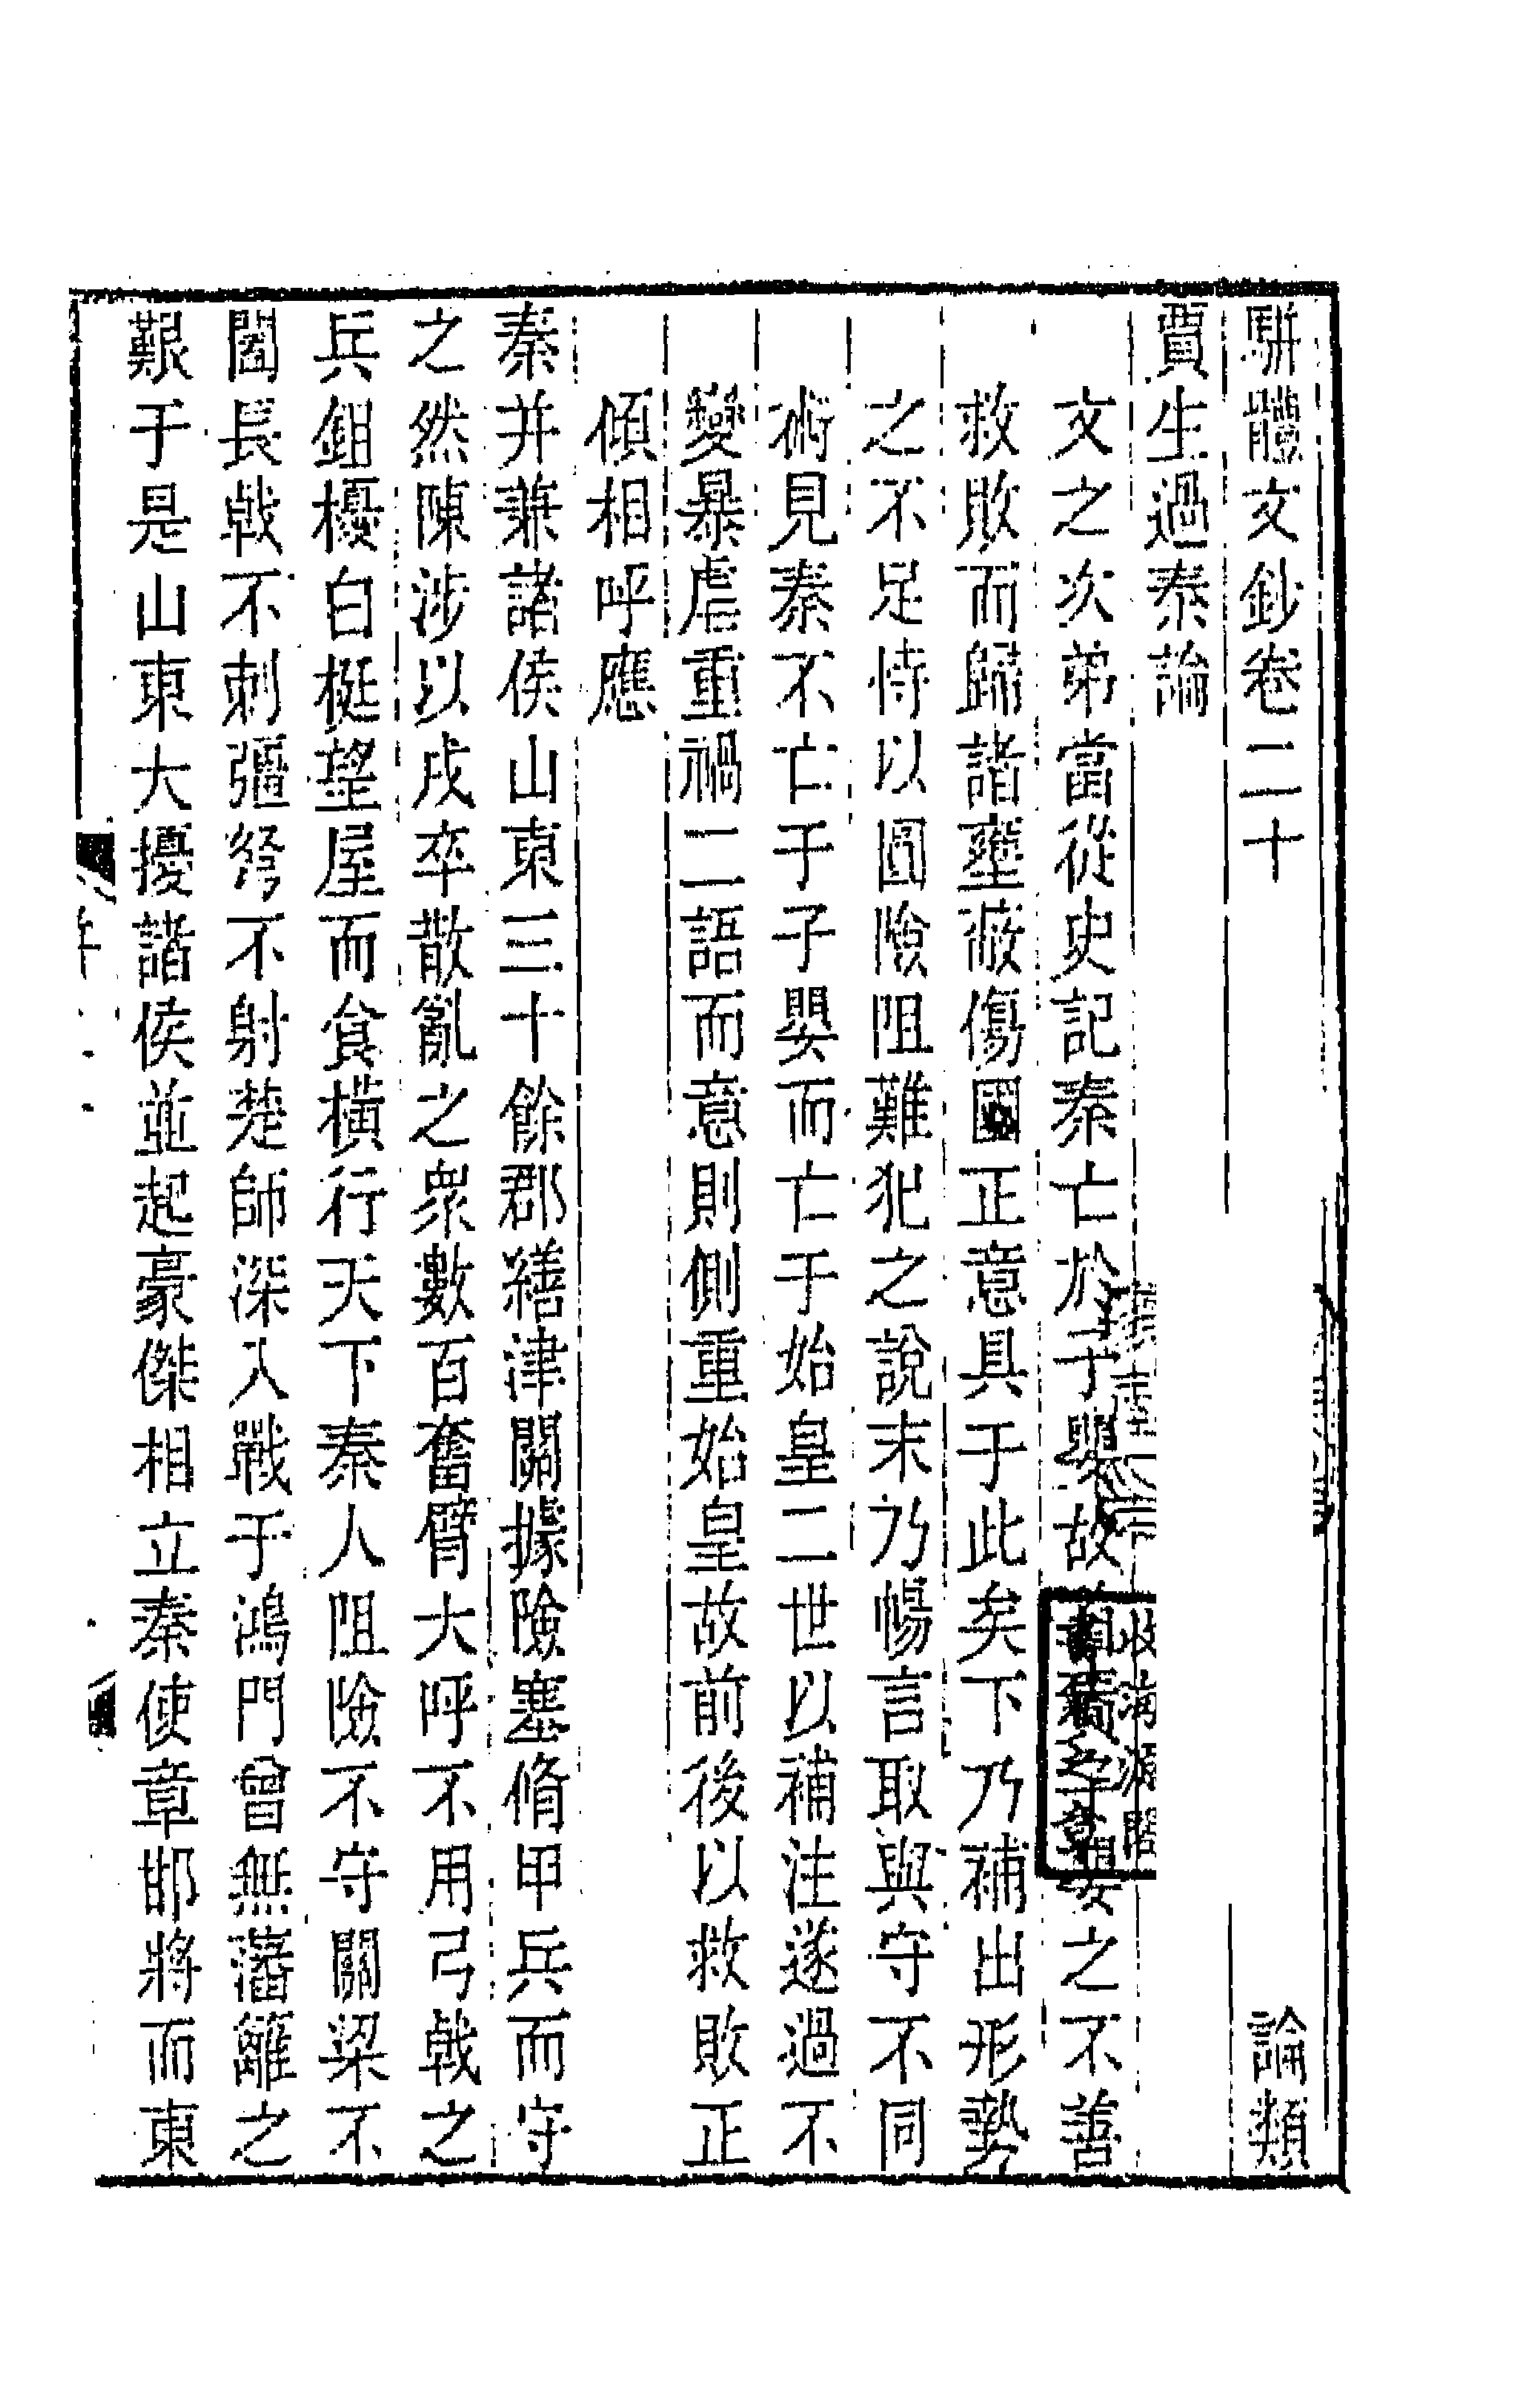 駢體文鈔卷二十 論類
賈生過秦論
文之次弟當從史記秦亡於子嬰故 子嬰之不善
救敗而歸諸壅蔽傷國正意具于此矣下乃補出形勢
之不足恃以圄險阻難犯之說末乃暢言取與守不同
術見秦不亡于子嬰而亡于始皇二世以補注遂過不
變暴虐重禍二語而意則側重始皇故前後以救敗正
傾相呼應
秦并兼諸侯山東三十餘郡繕津關據險塞脩甲兵而守
之然陳涉以戍卒散亂之衆數百奮臂大呼不用弓戟之
兵鉏櫌白梃望屋而食橫行天下秦人阻險不守關梁不
闔長戟不刺彊弩不射楚師深入戰于鴻門曾無藩籬之
艱于是山東大擾諸侯並起豪傑相立秦使章邯將而東